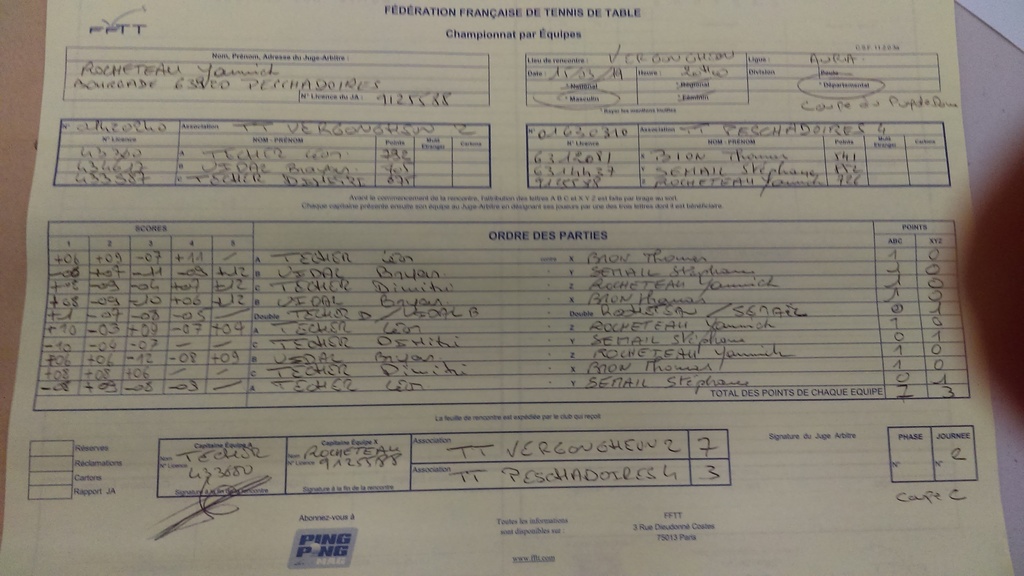 FÉDÉRATION FRANÇAISE DE TENNIS DE TABLE
FFTT
Championnat par Équipes
Nom, Prénom, Adresse du Juge-Arbitre :
ROCHETEAU Yannick
63920 PESCHADOIRES
N° Licence du JA : 9125588
Lieu de rencontre : VERGONGHEON
Ligue : AURA
Date : 15/03/19 Heure : 20H00 Division Poule
National Régional Départemental
Masculin Féminin
Rayer les mentions inutiles
Coupe du Puy de Dome
N° Association TT VERGONGHEON 2
N° Licence NOM - PRÉNOM Points Muté Etranger Cartons
433680 A TECHER Léon
B VIDAL Bryan
C TECHER Dimitri
N° 01630310 Association TT PESCHADOIRES 4
N° Licence NOM - PRÉNOM Points Muté Etranger Cartons
X BRON Thomas
Y SEMAIL Stéphane
9125588 Z ROCHETEAU Yannick
Avant le commencement de la rencontre, l'attribution des lettres A B C et X Y Z est faite par tirage au sort.
Chaque capitaine présente ensuite son équipe au Juge-Arbitre en désignant ses joueurs par une des trois lettres dont il est bénéficiaire.
SCORES ORDRE DES PARTIES POINTS
1 2 3 4 5 ABC XYZ
+06 +09 -07 +11 A TECHER Léon contre X BRON Thomas 1 0
-08 +07 -11 -09 +12 B VIDAL Bryan Y SEMAIL Stéphane 1 0
C TECHER Dimitri Z ROCHETEAU Yannick 1 0
+08 -09 -10 +06 +12 B VIDAL Bryan X BRON Thomas 1 0
-07 -08 -05 Double TECHER D / VIDAL B Double / 0 1
+10 -03 +09 -07 +07 A TECHER Léon Z ROCHETEAU Yannick 1 0
-10 -04 -07 C TECHER Dimitri Y SEMAIL Stéphane 0 1
+06 +06 -12 -08 +09 B VIDAL Bryan Z ROCHETEAU Yannick 1 0
+08 +08 +06 C TECHER Dimitri X BRON Thomas 1 0
-08 +09 -08 -09 A TECHER Léon Y SEMAIL Stéphane 0 1
TOTAL DES POINTS DE CHAQUE EQUIPE 7 3
La feuille de rencontre est expédiée par le club qui reçoit
Réserves
Réclamations
Cartons
Rapport JA
Capitaine Équipe A
Nom TECHER
N° Licence 433680
Signature à la fin de la rencontre
Capitaine Équipe X
Nom ROCHETEAU
N° Licence 9125588
Signature à la fin de la rencontre
Association TT VERGONGHEON 2 7
Association TT PESCHADOIRES 4 3
Signature du Juge Arbitre
PHASE JOURNEE
N° N° 2
Coupe C
Abonnez-vous à
PING PONG MAG
Toutes les informations
sont disponibles sur :
www.fftt.com
FFTT
3 Rue Dieudonné Costes
75013 Paris